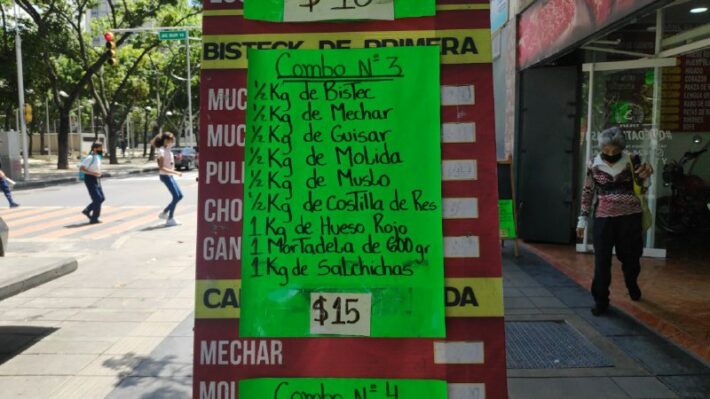 $10
BISTECK DE PRIMERA
Combo Nº 3
½ Kg de Bistec
½ Kg de Mechar
½ Kg de Guisar
½ Kg de Molida
½ Kg de Muslo
½ Kg de Costilla de Res
1 Kg de Hueso Rojo
1 Mortadela de 600 gr
1 Kg de Salchichas
$15
MUC
MUC
PUL
CHO
GAN
CA
DA
MECHAR
MOL
Combo Nº 4